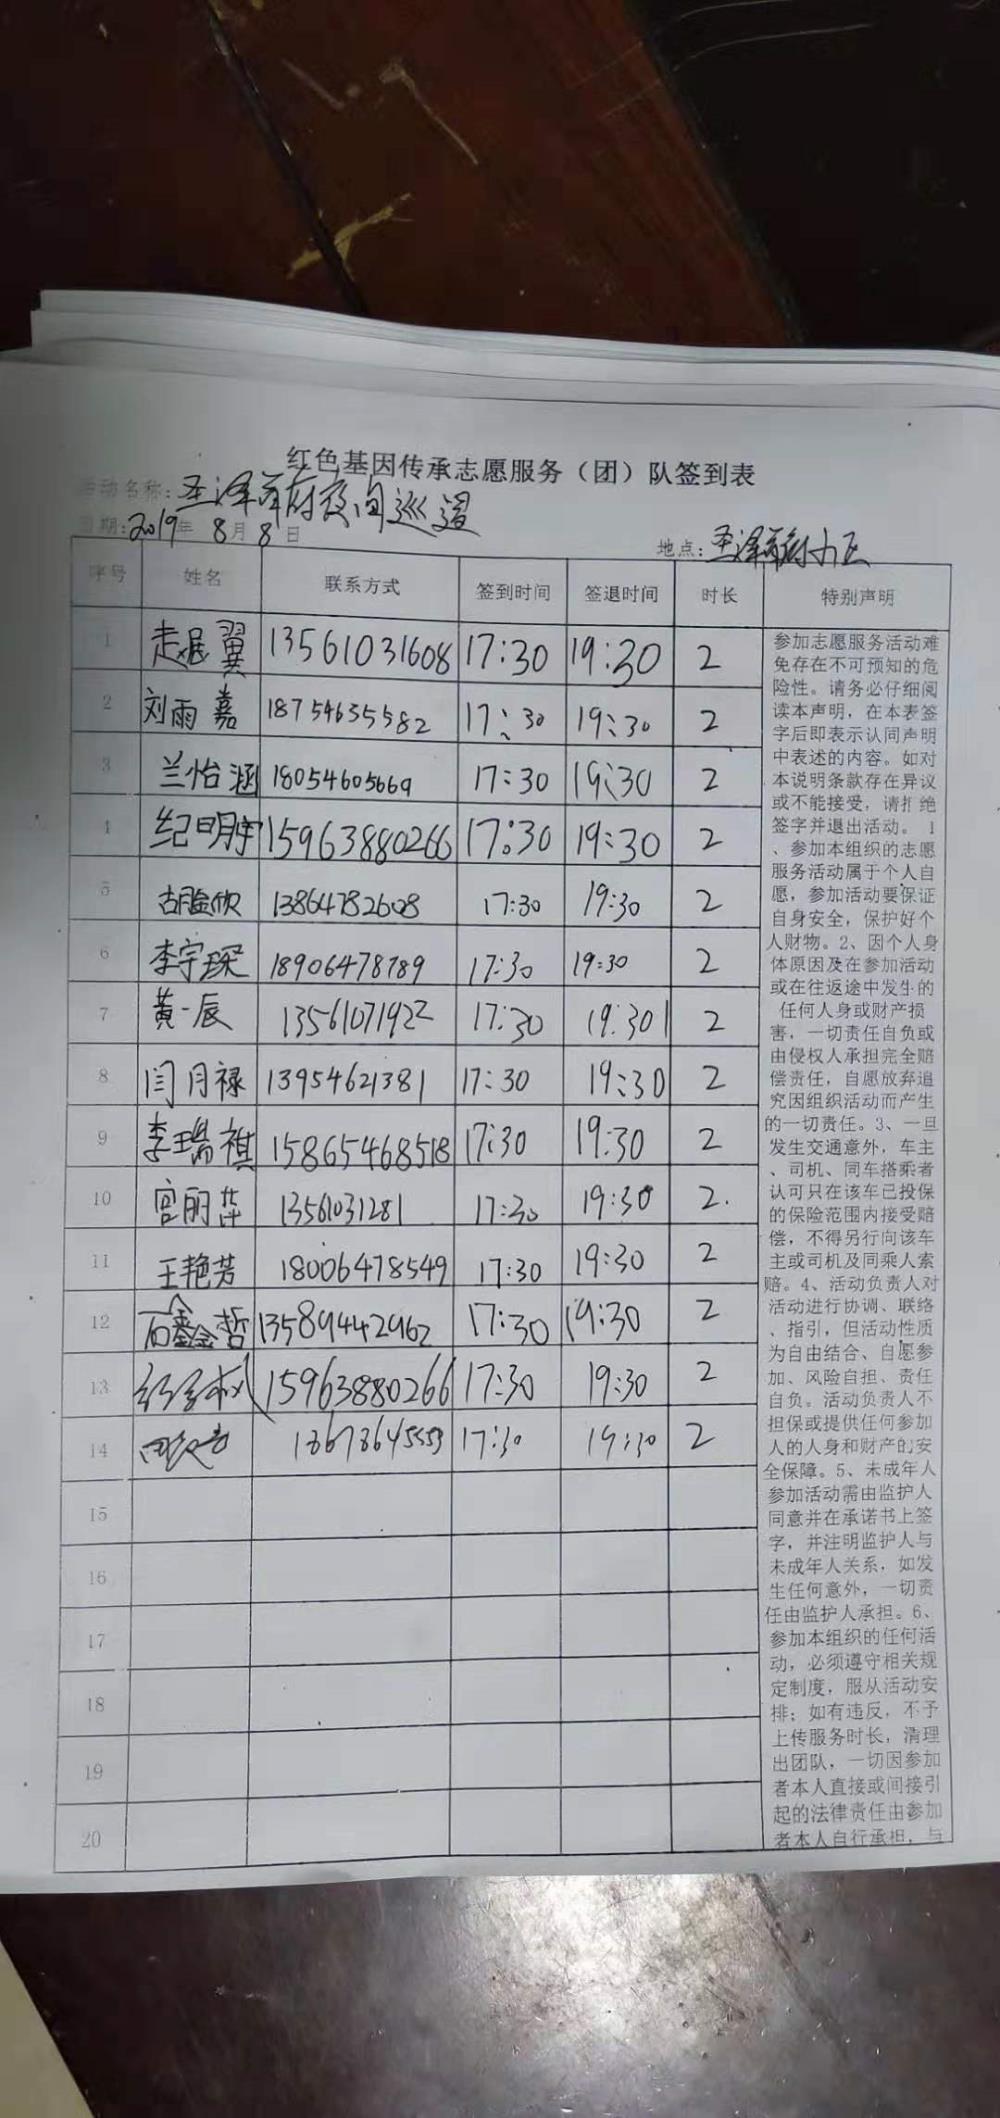 红色基因传承志愿服务（团）队签到表
活动名称：圣泽 府夜间巡逻
日期：2019年 8月 8日 地点：圣泽 府小区
序号 姓名 联系方式 签到时间 签退时间 时长 特别声明
1 翼 13561031608 17:30 19:30 2
2 刘雨嘉 18754635582 17:30 19:30 2
3 兰怡涵 18054605669 17:30 19:30 2
4 纪明宇 15963880266 17:30 19:30 2
5 13864782608 17:30 19:30 2
6 李宇琛 18906478789 17:30 19:30 2
7 黄一辰 13561071922 17:30 19:30 2
8 闫月禄 13954621381 17:30 19:30 2
9 李瑞祺 15865468518 17:30 19:30 2
10 宫丽萍 13561031281 17:30 19:30 2.
11 王艳芳 18006478549 17:30 19:30 2
12 石鑫哲 13589442962 17:30 19:30 2
13 15963880266 17:30 19:30 2
14 17:30 19:30 2
15
16
17
18
19
20
参加志愿服务活动难
免存在不可预知的危
险性。请务必仔细阅
读本声明，在本表签
字后即表示认同声明
中表述的内容。如对
本说明条款存在异议
或不能接受，请拒绝
签字并退出活动。 1
、参加本组织的志愿
服务活动属于个人自
愿，参加活动要保证
自身安全，保护好个
人财物。2、因个人身
体原因及在参加活动
或在往返途中发生的
任何人身或财产损
害，一切责任自负或
由侵权人承担完全赔
偿责任，自愿放弃追
究因组织活动而产生
的一切责任。3、一旦
发生交通意外，车主
、司机、同车搭乘者
认可只在该车已投保
的保险范围内接受赔
偿，不得另行向该车
主或司机及同乘人索
赔。4、活动负责人对
活动进行协调、联络
、指引，但活动性质
为自由结合、自愿参
加、风险自担、责任
自负。活动负责人不
担保或提供任何参加
人的人身和财产的安
全保障。5、未成年人
参加活动需由监护人
同意并在承诺书上签
字，并注明监护人与
未成年人关系，如发
生任何意外，一切责
任由监护人承担。6、
参加本组织的任何活
动，必须遵守相关规
定制度，服从活动安
排；如有违反，不予
上传服务时长，清理
出团队，一切因参加
者本人直接或间接引
起的法律责任由参加
者本人自行承担，与